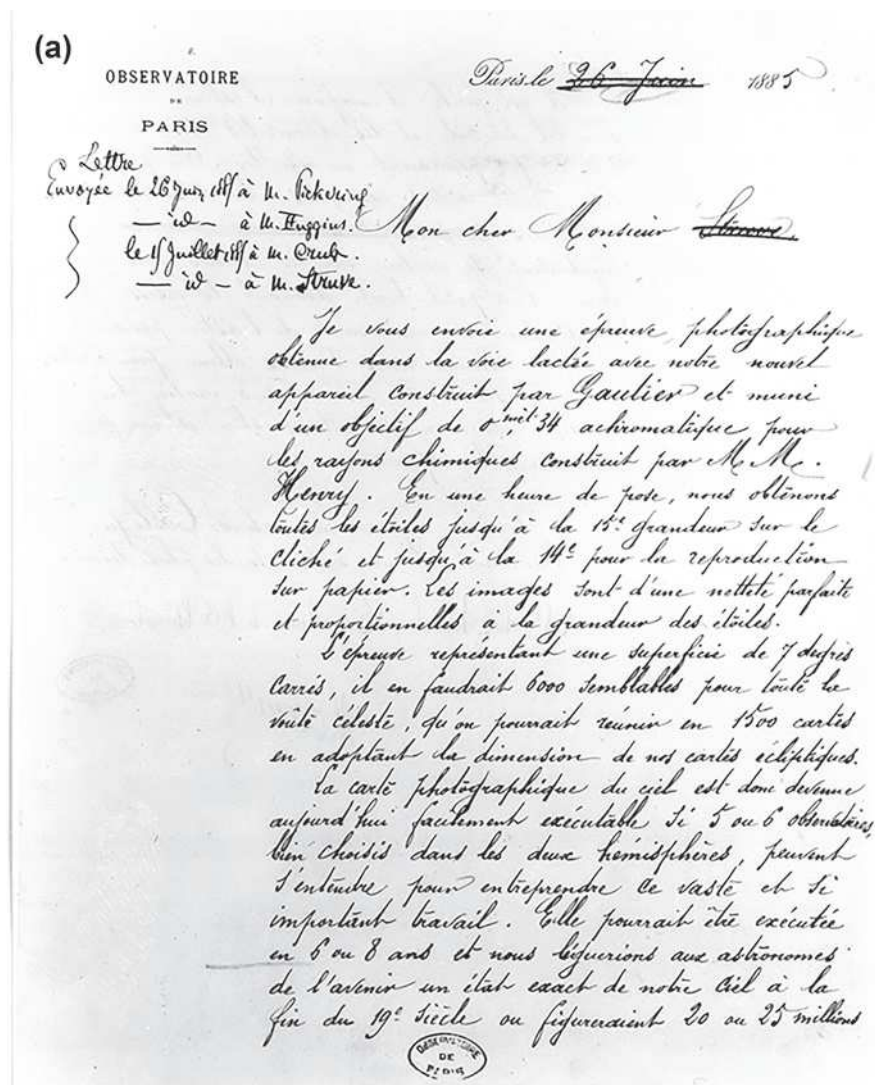 (a)
OBSERVATOIRE
DE
PARIS
Paris, le 26 Juin 1885
Lettre
Envoyée le 26 Juin 1885 à M. Pickering
— id — à M. Huggins.
le 15 Juillet 1885 à M. Crub.
— id — à M. Struve.
Mon cher Monsieur Struve.
Je vous envoie une épreuve photographique
obtenue dans la voie lactée avec notre nouvel
appareil construit par Gautier et muni
d'un objectif de 0 mèt. 34 achromatique pour
les rayons chimiques construit par M M.
Henry. En une heure de pose, nous obtenons
toutes les étoiles jusqu'à la 15e grandeur sur le
cliché et jusqu'à la 14e pour la reproduction
sur papier. Les images sont d'une netteté parfaite
et proportionnelles à la grandeur des étoiles.
L'épreuve représentant une superficie de 7 degrés
carrés, il en faudrait 6000 semblables pour toute la
voûte céleste, qu'on pourrait réunir en 1500 cartes
en adoptant la dimension de nos cartes écliptiques.
La carte photographique du ciel est donc devenue
aujourd'hui facilement exécutable si 5 ou 6 observatoires,
bien choisis dans les deux hémisphères, peuvent
s'entendre pour entreprendre ce vaste et si
important travail. Elle pourrait être exécutée
en 6 ou 8 ans et nous léguerions aux astronomes
de l'avenir un état exact de notre Ciel à la
fin du 19e siècle ou figureraient 20 ou 25 millions
OBSERVATOIRE
DE
PARIS